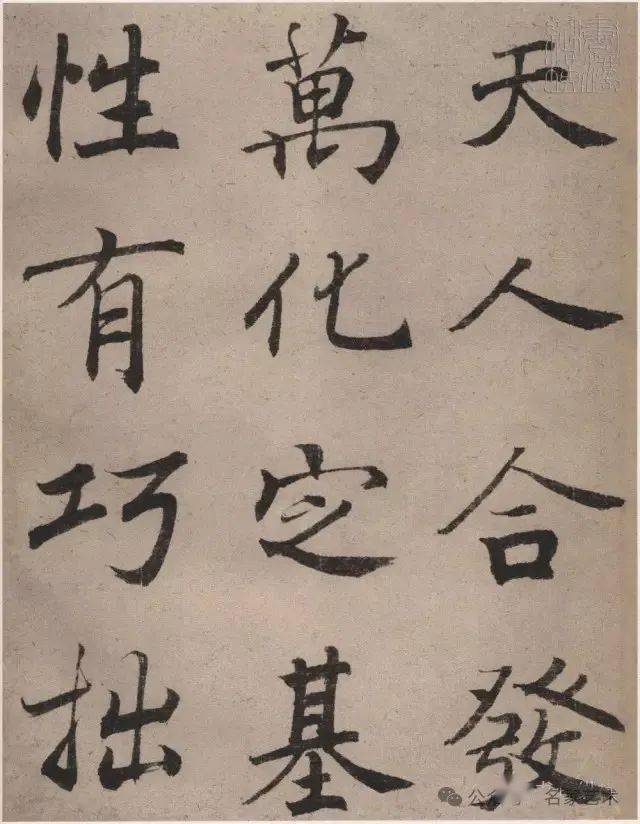 天人合發
萬化定基
性有巧拙
公众号 名家艺术